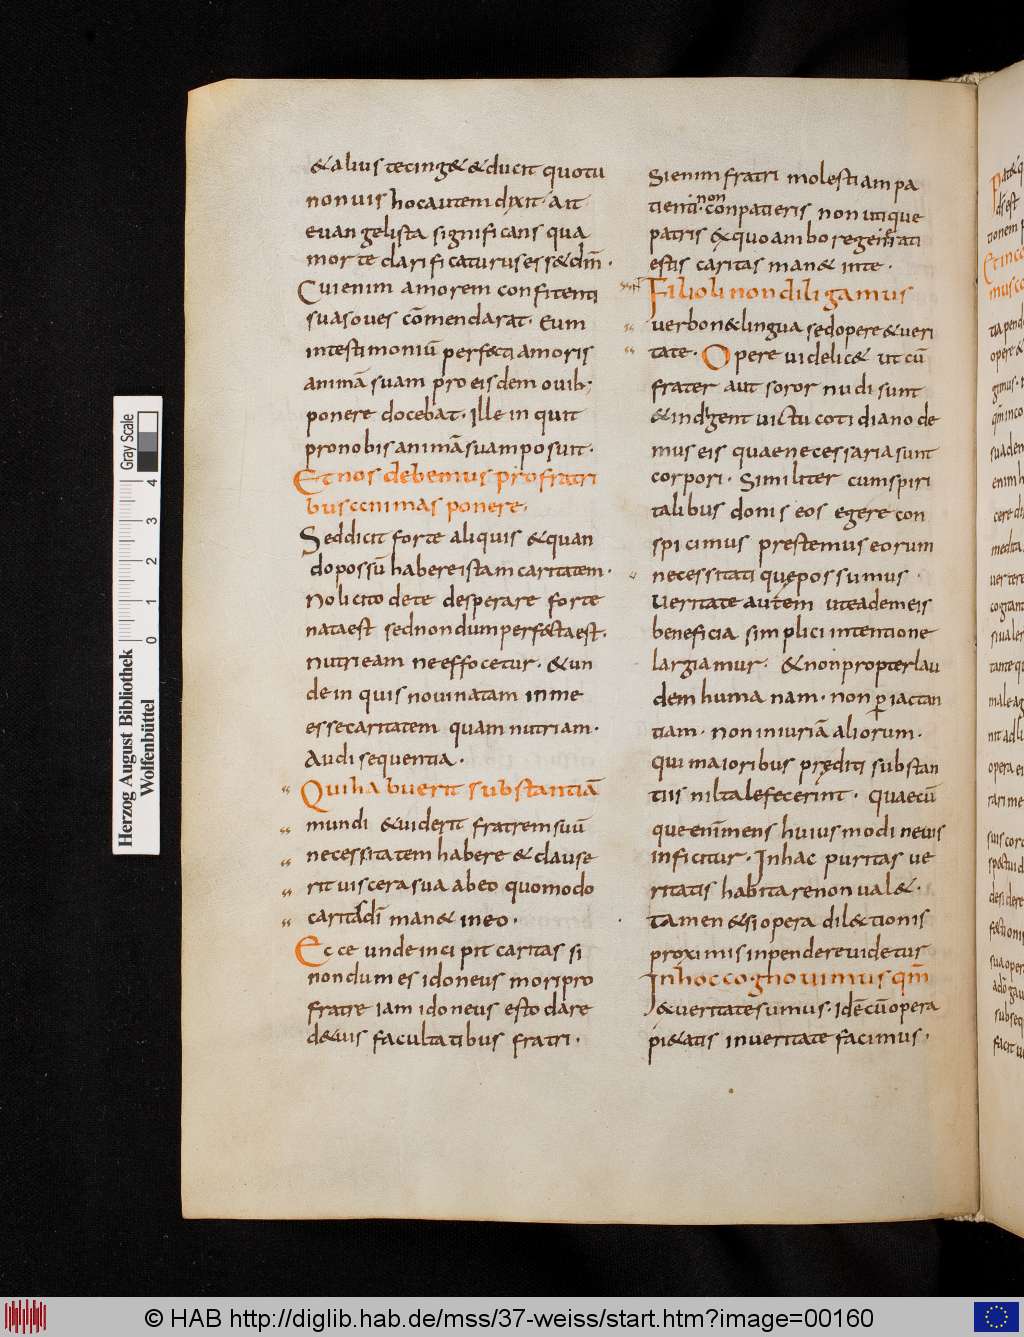 & alius te cing& & ducit quo tu
non uis hoc autem dixit. ait
euangelista significans qua
morte clarificaturus ess& dm̄.
Cui enim amorem confitenti
suas oues cōmendarat. eum
in testimoniū perfecti amoris
animā suam pro eisdem ouib;
ponere docebat. ille inquit
pro nobis animā suam posuit.
Et nos debemus pro fratri
bus animas ponere.
Sed dicit forte aliquis & quan
do possū habere istam caritatem.
Noli cito de te desperare forte
nata est sed non dum perfecta est.
nutri eam ne effocetur. & un
de inquis noui natam in me
esse caritatem quam nutriam.
Audi sequentia.
Qui habuerit substantiā
mundi & uiderit fratrem suū
necessitatem habere & clause
rit uiscera sua ab eo quomodo
caritas dī man& in eo.
Ecce unde incipit caritas si
nondum es idoneus mori pro
fratre iam idoneus esto dare
de tuis facultatibus fratri.
Si enim fratri molestiam pa
tienti. non conpatieris non utique
patris ex quo ambo regenerati
estis caritas man& in te.
Filioli non diligamus
uerbo n& lingua sed opere & ueri
tate. Opere uidelic& ut cū
frater aut soror nudi sunt
& indigent uictu cotidiano de
mus eis quae necessaria sunt
corpori. Similiter cum spiri
talibus donis eos egere con
spicimus prestemus eorum
necessitati que possumus.
Ueritate autem ut eadem eis
beneficia simplici intentione
largiamur. & non propter lau
dem humanam. non ꝑ iactan
tiam. non iniuriā aliorum.
qui maioribus prediti substan
tiis nil tale fecerint. Quaecū
que enim mens huiusmodi neuis
inficitur. In hac puritas ue
ritatis habitare non ual&.
tamen & si opera dil&tionis
proximis inpendere uidetur
In hoc cognouimus qm̄
& ueritate sumus. idē cū opera
pi&atis in ueritate facimus.
Herzog August Bibliothek
Wolfenbüttel
Gray Scale
0 1 2 3 4
© HAB http://diglib.hab.de/mss/37-weiss/start.htm?image=00160